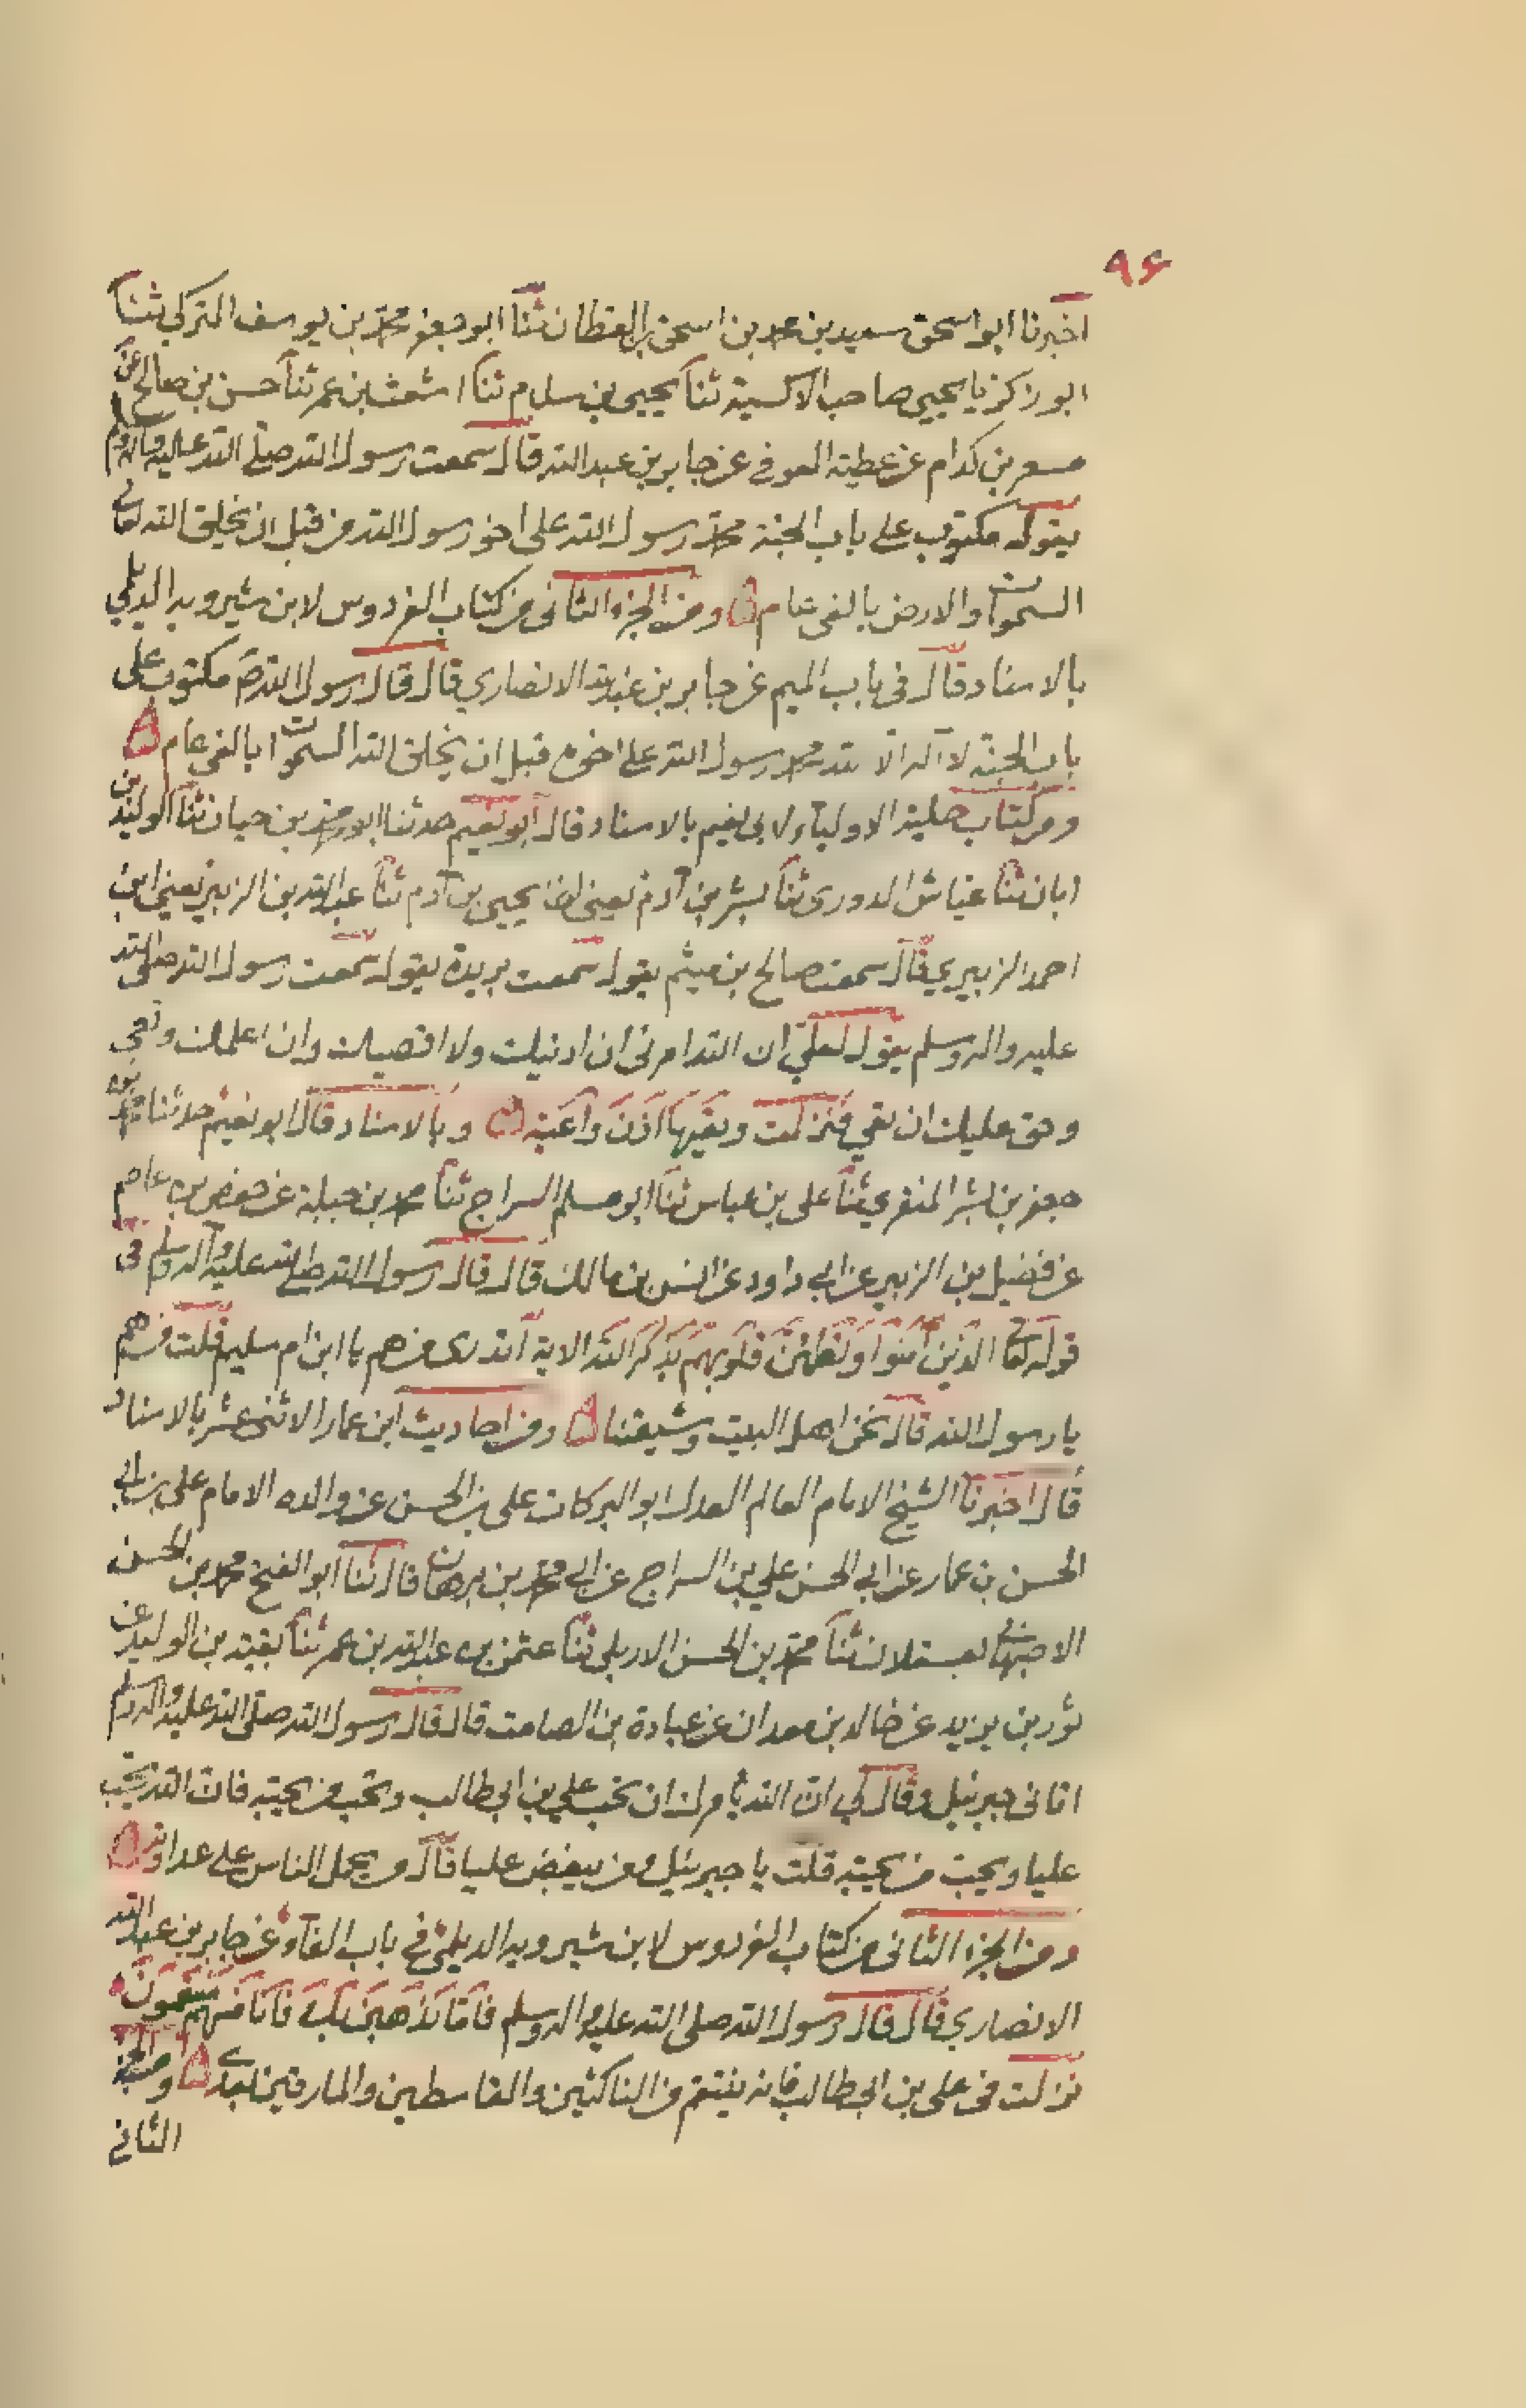 ٩۶
اخبرنا ابو اسحق سعيد بن محمد بن اسحق بن القطان ثنا ابو جعفر محمد بن يوسف التركي ثنا
ابو زكريا يحيى صاحب الاكسية ثنا يحيى بن سلام ثنا اشعث بن عمر ثنا حسن بن صالح عن
مسعر بن كدام عن عطية العوفي عن جابر بن عبد الله قال سمعت رسول الله صلى الله عليه واله وسلم
يقول مكتوب على باب الجنة محمد رسول الله على اخو رسول الله من قبل ان يخلق الله تعالى
السموات والارض بالفى عام ومن الجزء الثانى من كتاب الفردوس لابن شيرويه الديلمي
بالاسناد قال فى باب الميم عن جابر بن عبد الله الانصاري قال قال رسول الله ص مكتوب على
باب الجنة لا اله الا الله محمد رسول الله على اخوه قبل ان يخلق الله السموات بالفى عام
ومن كتاب حلية الاولياء لابى نعيم بالاسناد قال ابو نعيم حدثنا ابو محمد بن حيان ثنا الوليد بن
ابان ثنا عباس الدورى ثنا بشر بن آدم يعنى اخا يحيى بن آدم ثنا عبد الله بن الزبير يعنى ابن
احمد الزبيري قال سمعت صالح بن ميثم يقول سمعت بريدة يقول سمعت رسول الله صلى الله
عليه واله وسلم يقول لعلي ان الله امرنى ان ادنيك ولا اقصيك وان اعلمك وتعى
وحق عليك ان تعي فنزلت وتعيها اذن واعية وبالاسناد قال ابو نعيم حدثنا محمد بن
جعفر بن بشر المنقري ثنا على بن عباس ثنا ابو مسلم السراج ثنا محمد بن جبلة عن حفص بن عاصم
عن فضيل بن الزبير عن ابى داود عن انس بن مالك قال قال رسول الله صلى الله عليه واله وسلم فى
قوله تعا الذين آمنوا وتطمئن قلوبهم بذكر الله الاية اتدرى من هم يا ابن ام سليم قلت من هم
يا رسول الله قال نحن اهل البيت وشيعتنا ومن احاديث ابن عمار الاثنى عشر بالاسناد
قال اخبرنا الشيخ الامام العالم العدل ابو البركات على بن الحسن عن والده الامام على بن ابى
الحسن بن عمار عن ابى الحسن علي بن السراج عن ابى محمد بن برهان قال ثنا ابو الفتح محمد بن الحسن
الاصبهانى بعسقلان ثنا محمد بن الحسن الاربلى ثنا عثمن بن عبد الله بن عمر ثنا بقية بن الوليد عن
ثور بن يزيد عن خالد بن معدان عن عبادة بن الصامت قال قال رسول الله صلى الله عليه واله وسلم
اتانى جبرئيل وقال لي ان الله يامرك ان تحب علي بن ابى طالب وتحب من يحبه فان الله يحب
عليا ويحب من يحبه قلت يا جبرئيل ومن يبغض عليا قال من يحمل الناس على عداوته
ومن الجزء الثانى من كتاب الفردوس لابن شيرويه الديلمى فى باب الفاء عن جابر بن عبد الله
الانصاري قال قال رسول الله صلى الله عليه واله وسلم فاما نذهبن بك فانا منهم منتقمون
نزلت فى على بن ابى طالب فانه ينتقم من الناكثين والقاسطين والمارقين بعدى ومن الجزء
الثانى